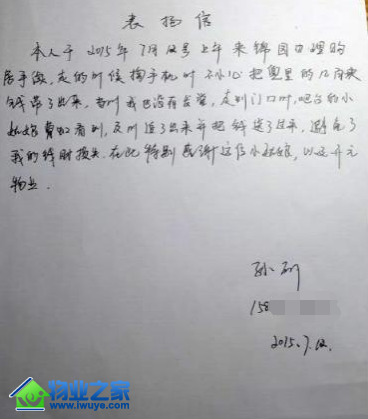 表扬信
本人于2015年7月12号上午来锦园办理购
房手续,走的时候掏手机时不小心把兜里的几百块
钱带了出来,当时我也没有发觉,走到门口时,吧台的小
姑娘看到,及时追了出来并把钱送了过来,避免了
我的钱财损失.在此特别感谢这位小姑娘,以及开元
物业.
孙
158
2015.7.12.
物业之家
www.iwuye.com